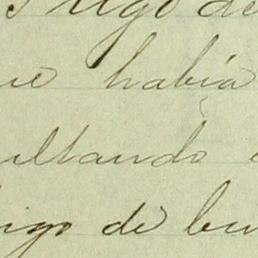 Trigo de
ue había
ultando
igo de bu